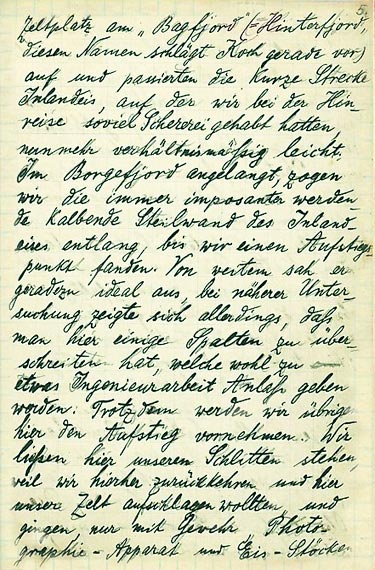 5.
Zeltplatz am „Bagfjord" (= Hinterfjord,
diesen Namen schlägt Koch gerade vor)
auf und passierten die kurze Strecke
Inlandeis, auf der wir bei der Hin-
reise soviel Schererei gehabt hatten,
nunmehr verhältnismässig leicht.
Im Borgefjord angelangt, zogen
wir die immer imposanter werden
de kalbende Steilwand des Inland
eises entlang, bis wir einen Aufstiegs-
punkt fanden. Von weitem sah er
geradezu ideal aus, bei näherer Unter-
suchung zeigte sich allerdings, daß
man hier einige Spalten zu über-
schreiten hat, welche wohl zu
etwas Ingenieurarbeit Anlaß geben
werden. Trotzdem werden wir übrigens
hier den Aufstieg vornehmen. Wir
ließen hier unseren Schlitten stehen,
weil wir hierher zurückkehren und hier
unser Zelt aufschlagen wollten, und
gingen nur mit Gewehr Photo-
graphie-Apparat und Eis-Stöcken